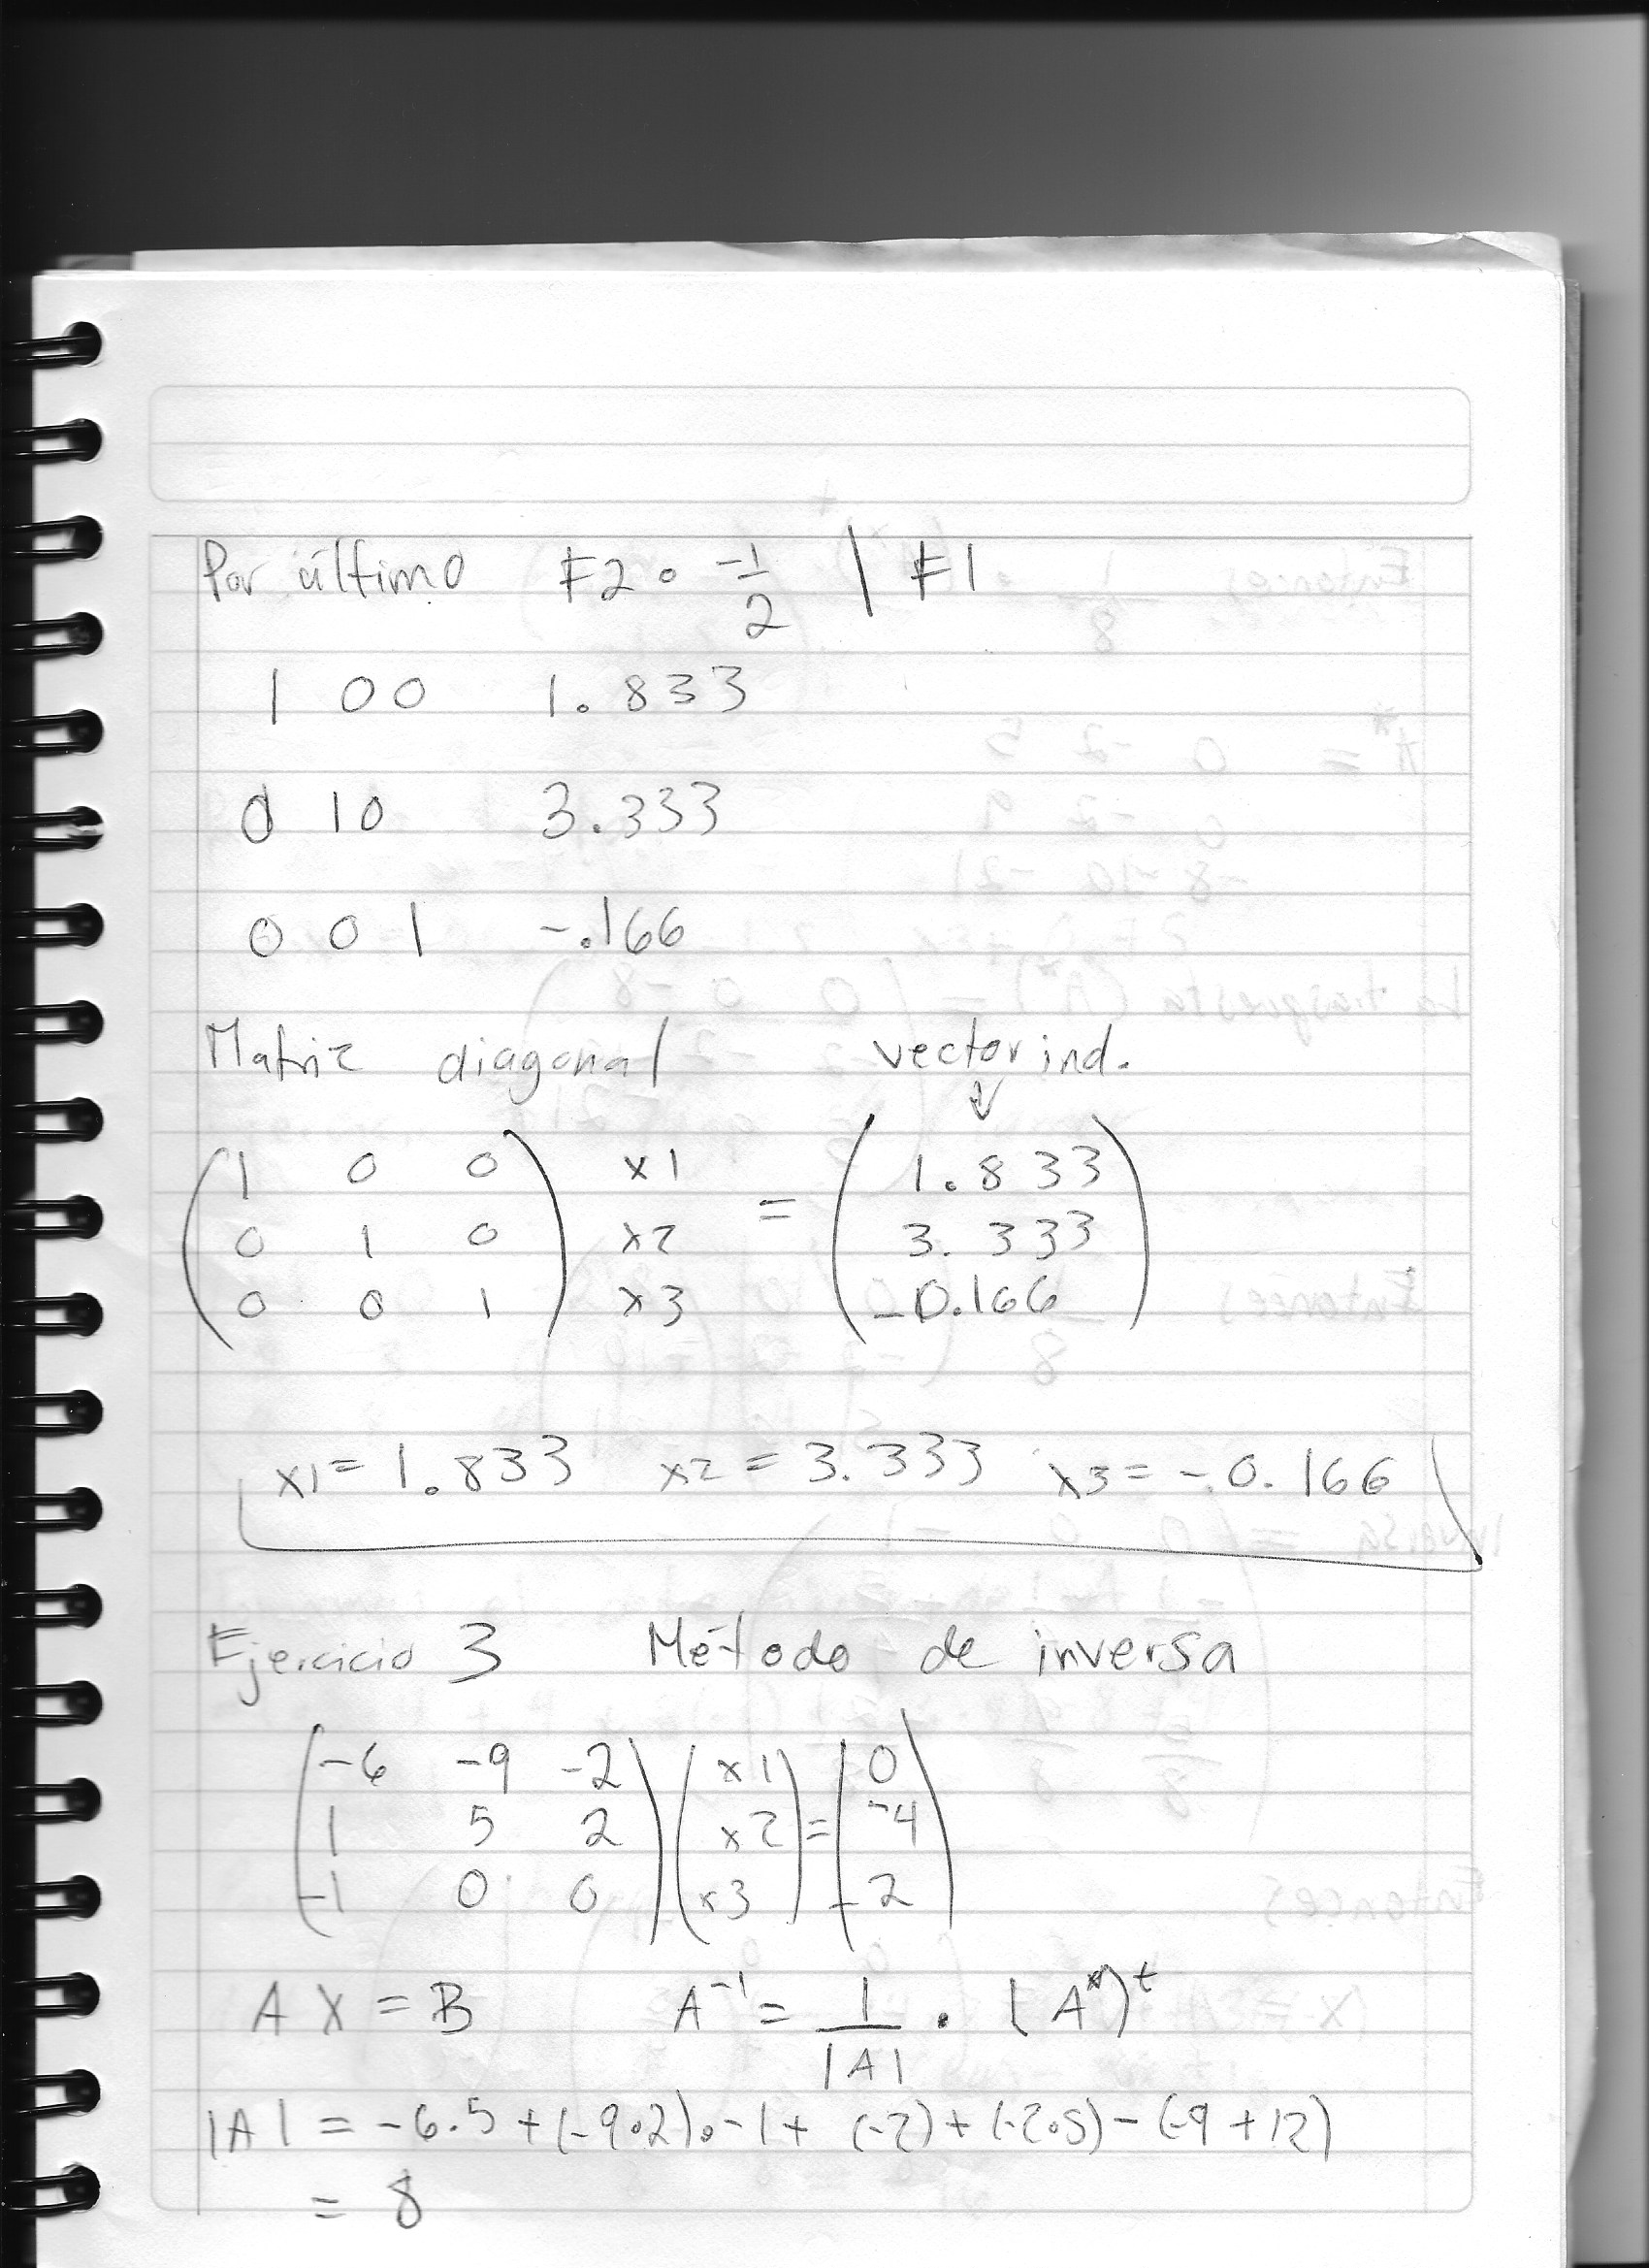 Por último F2 • -1/2 | F1
1 0 0 1.833
0 1 0 3.333
0 0 1 -.166
Matriz diagonal vector ind.
↓
1 0 0 x1 1.833
0 1 0 x2 = 3.333
0 0 1 x3 -0.166
x1 = 1.833 x2 = 3.333 x3 = -0.166
Ejercicio 3 Método de inversa
-6 -9 -2 x1 0
1 5 2 x2 = -4
-1 0 0 x3 -2
A X = B A⁻¹ = 1/|A| • (A*)ᵗ
|A| = -6.5 + (-9•2)•-1 + (-2) + (-2•5) - (-9 + 12)
= 8